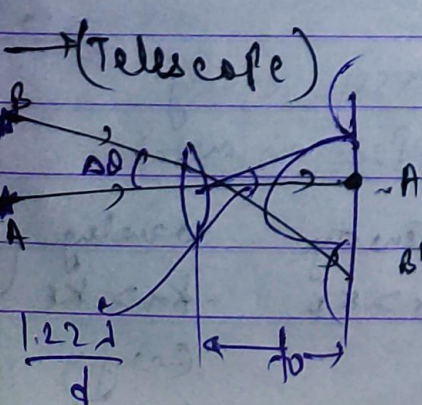 →(Telescope)
B
Δθ
~A
A
B'
1.22λ
d
fo